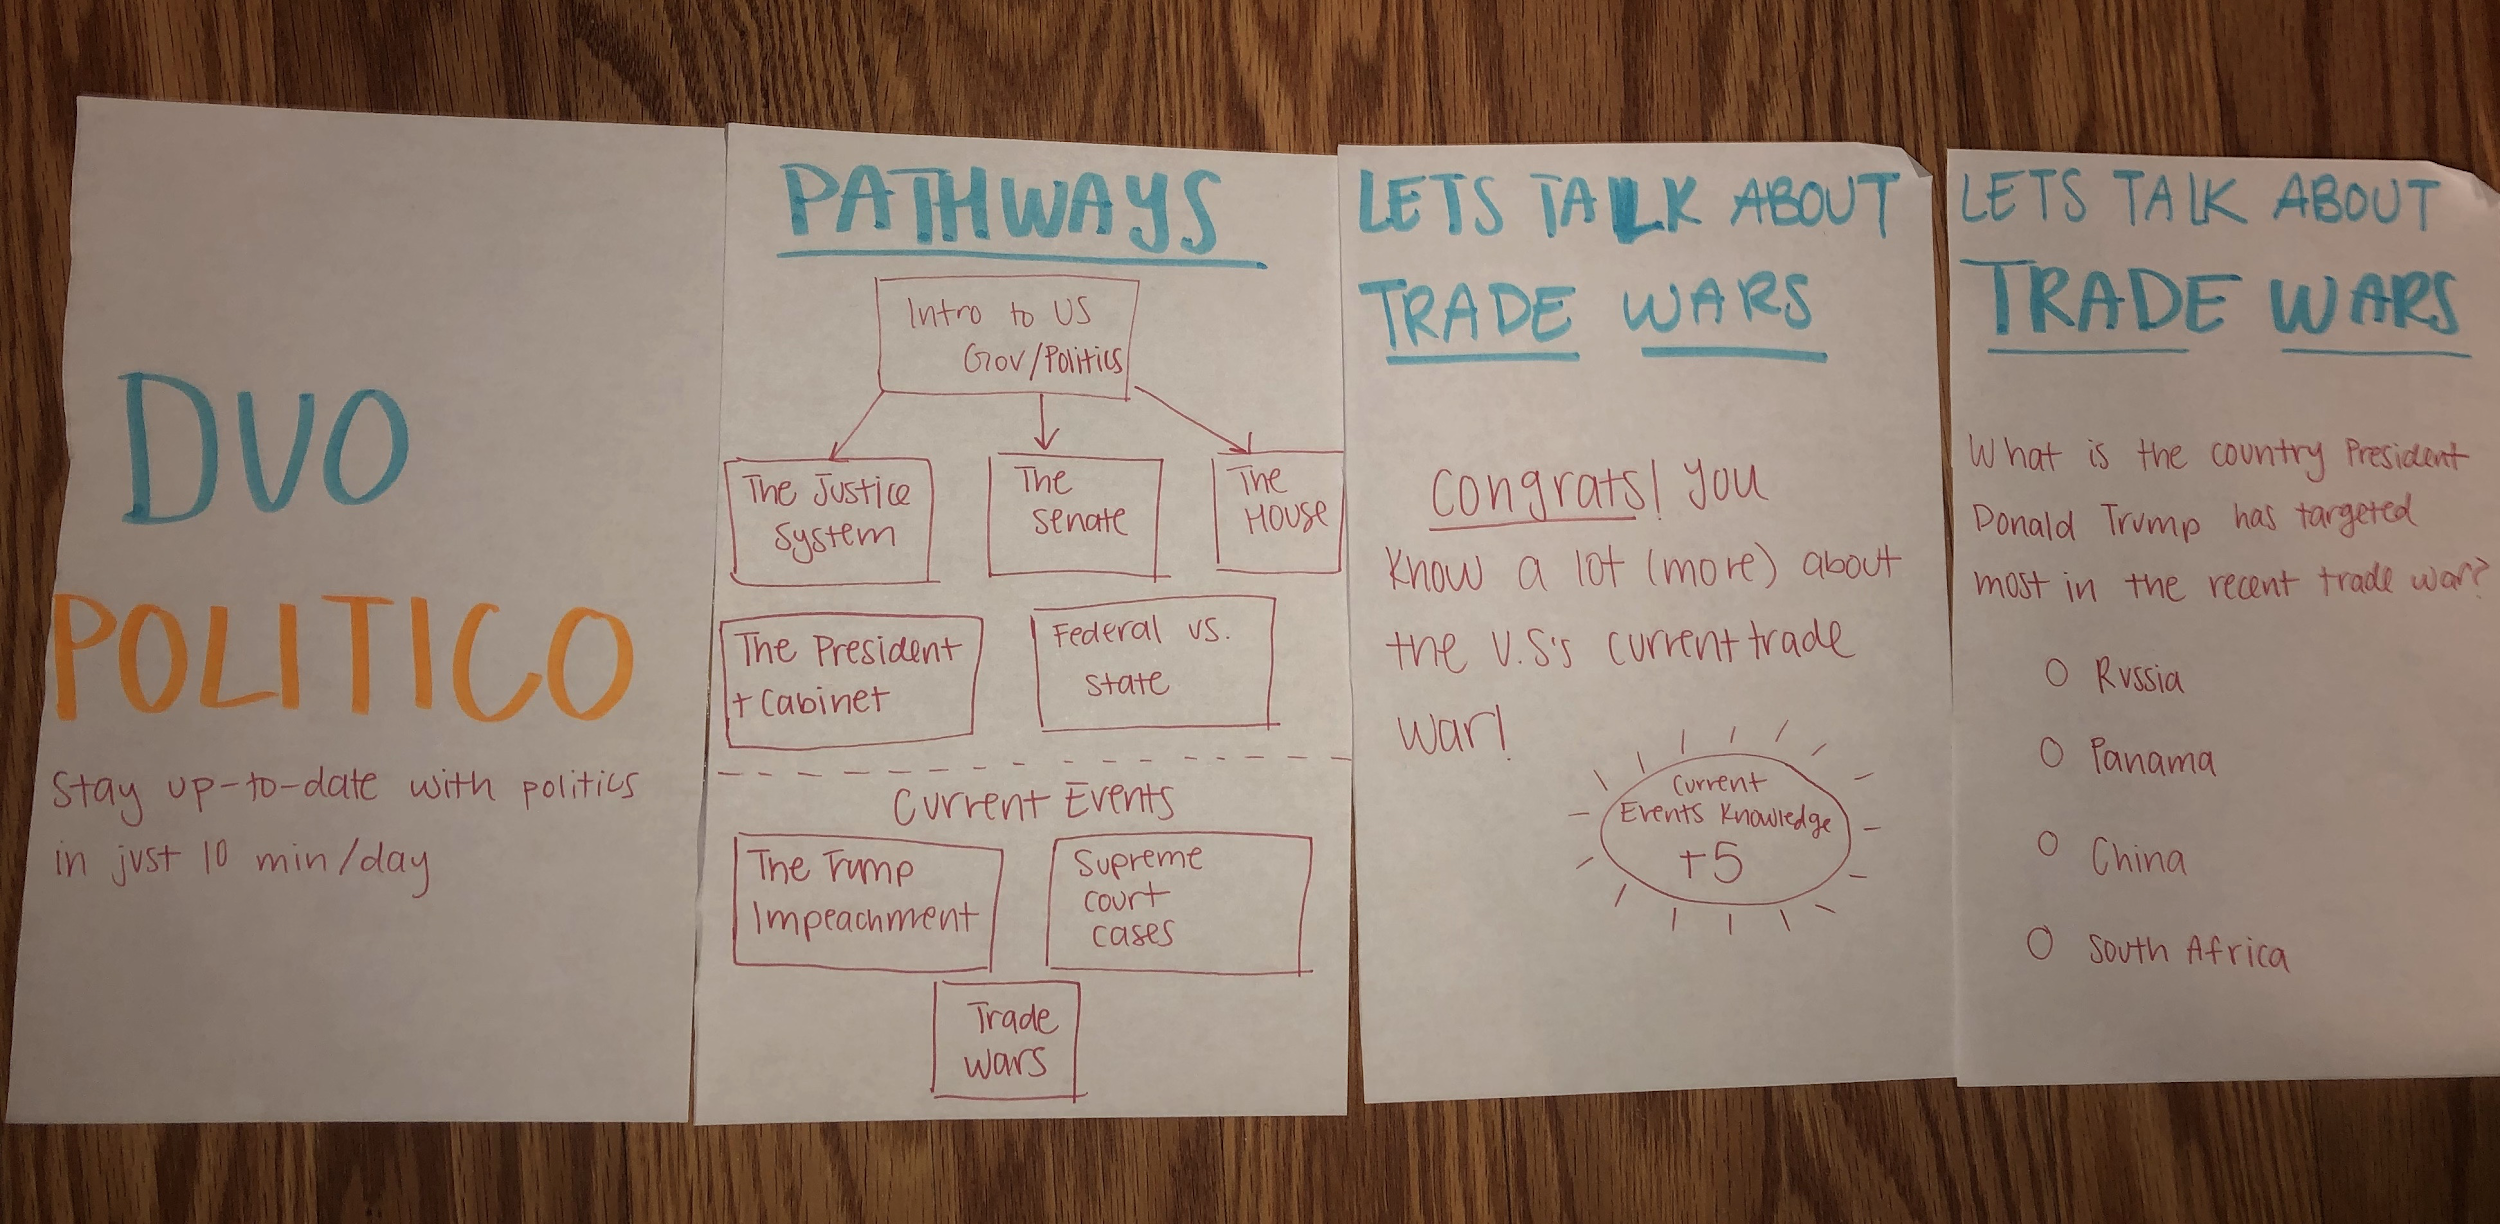 DUO
POLITICO
Stay up-to-date with politics
in just 10 min/day
PATHWAYS
Intro to US
Gov/Politics
The Justice
System
The
Senate
The
House
The President
+ Cabinet
Federal vs.
State
Current Events
The Trump
Impeachment
Supreme
Court
Cases
Trade
Wars
LETS TALK ABOUT
TRADE WARS
Congrats! You
know a lot (more) about
the U.S's current trade
war!
Current
Events Knowledge
+5
LETS TALK ABOUT
TRADE WARS
What is the country President
Donald Trump has targeted
most in the recent trade war?
Russia
Panama
China
South Africa